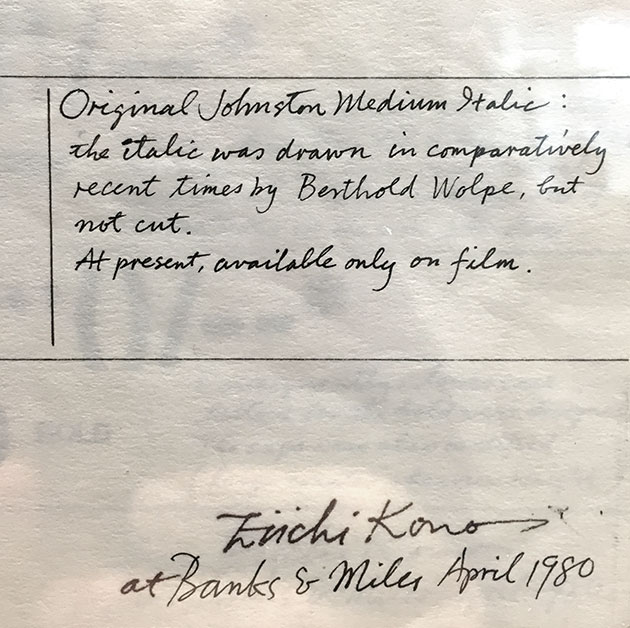 Original Johnston Medium Italic :
the italic was drawn in comparatively
recent times by Berthold Wolpe, but
not cut.
At present, available only on film.
Eiichi Kono
at Banks & Miles April 1980